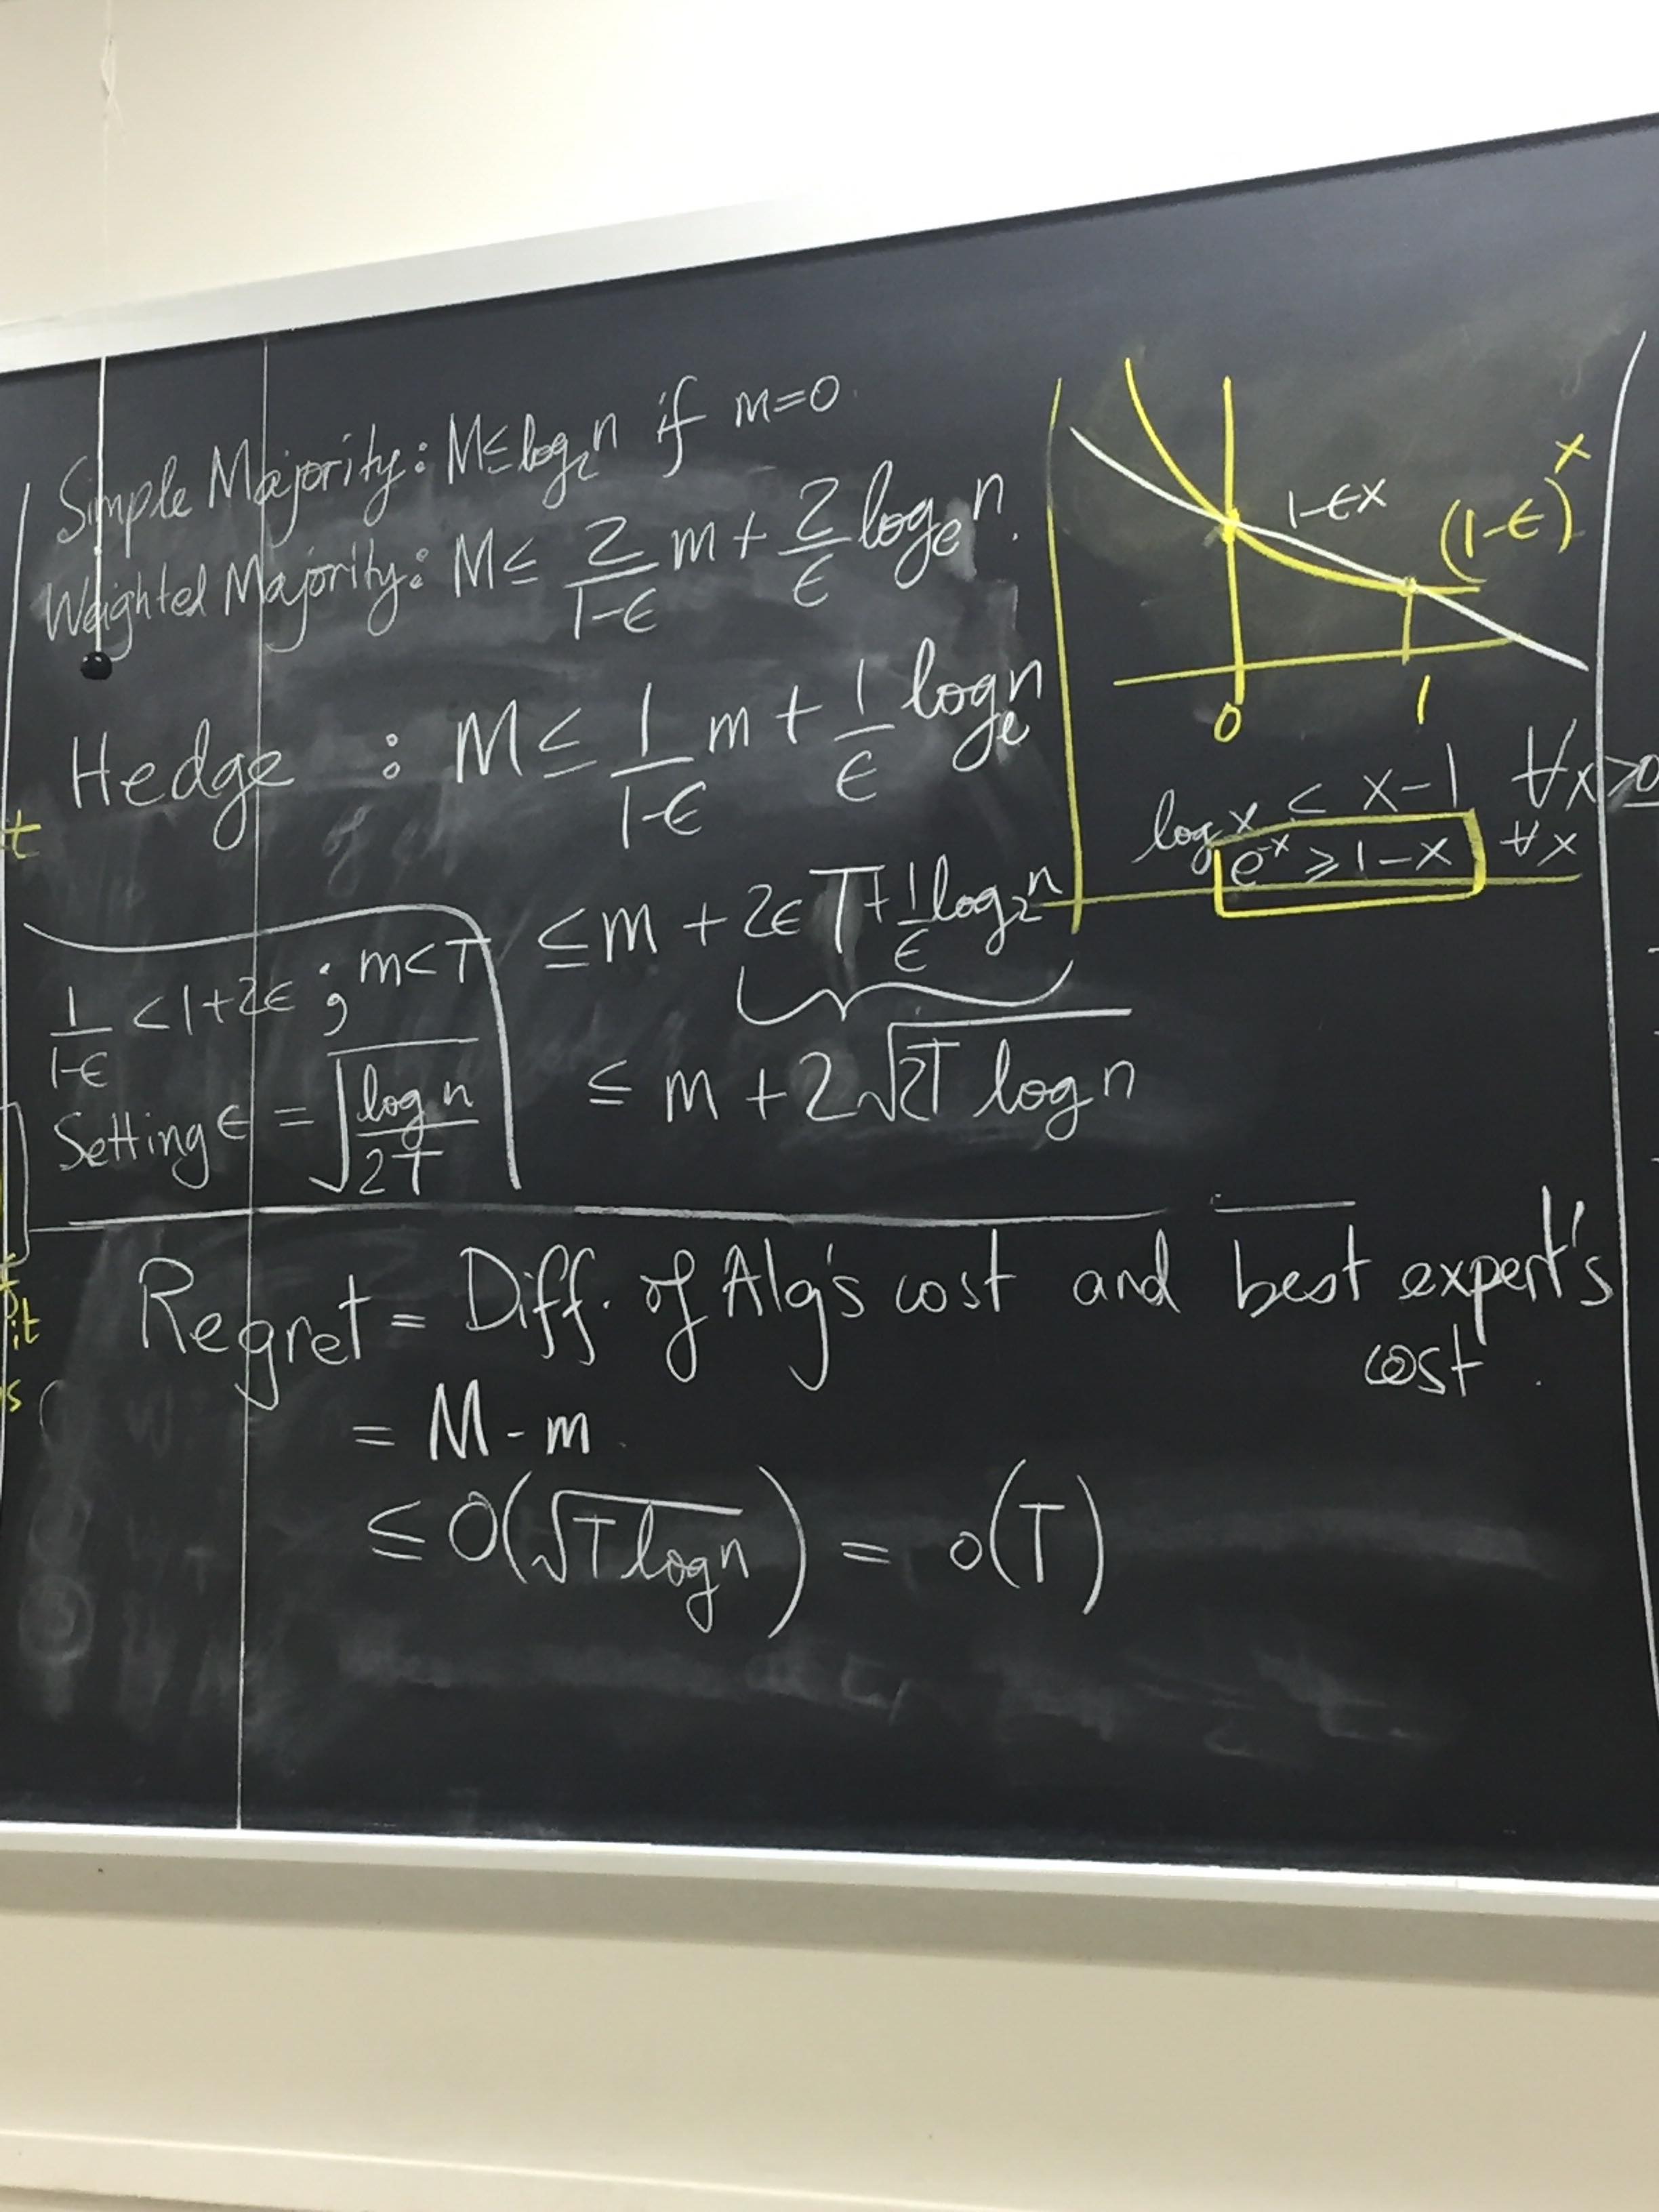 Simple Majority: M ≤ log₂n if m=0.
Weighted Majority: M ≤ 2/(1-ϵ) m + 2/ϵ logₑn.
Hedge : M ≤ 1/(1-ϵ) m + 1/ϵ logₑn
≤ m + 2ϵT + 1/ϵ log₂n
≤ m + 2√(2T log n)
1/(1-ϵ) < 1+2ϵ ; m<T
Setting ϵ = √(log n / 2T)
1-ϵx
(1-ϵ)ˣ
0 1
log x ≤ x-1 ∀x≥0
e⁻ˣ ≥ 1-x ∀x
Regret = Diff. of Alg's cost and best expert's
cost.
= M - m.
≤ O(√(T log n)) = o(T)
t
it
s